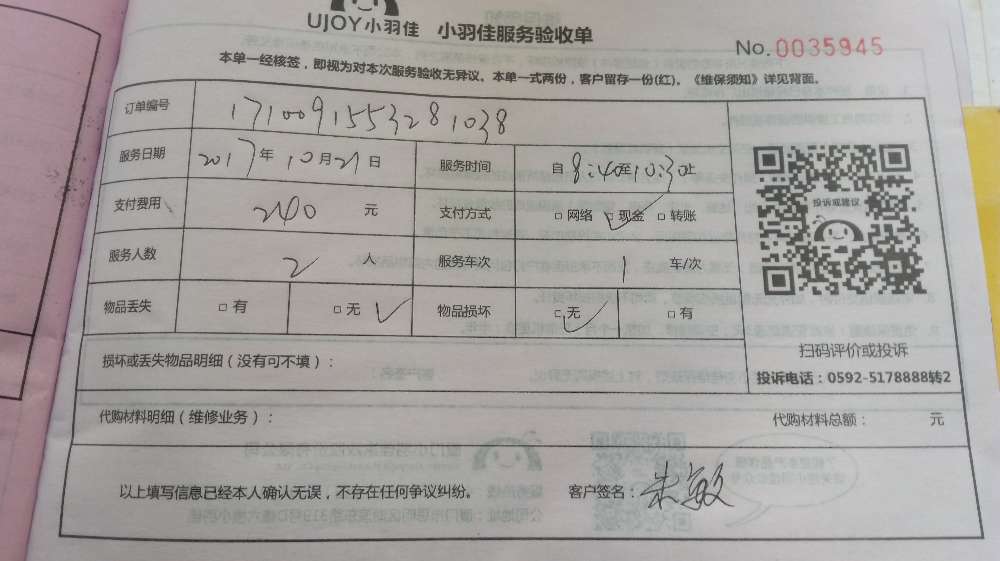 UJOY小羽佳 小羽佳服务验收单
No. 0035945
本单一经核签，即视为对本次服务验收无异议。本单一式两份，客户留存一份(红)。《维保须知》详见背面。
订单编号 171009155328 1038
服务日期 2017年10月21日 服务时间 自8:40至10:30止
支付费用 240 元 支付方式 □网络 □现金 □转账
投诉或建议
服务人数 2 人 服务车次 1 车/次
物品丢失 □有 □无 物品损坏 □无 □有
扫码评价或投诉
损坏或丢失物品明细（没有可不填）：
投诉电话：0592-5178888转2
代购材料明细（维修业务）： 代购材料总额： 元
以上填写信息已经本人确认无误，不存在任何争议纠纷。 客户签名：朱敏